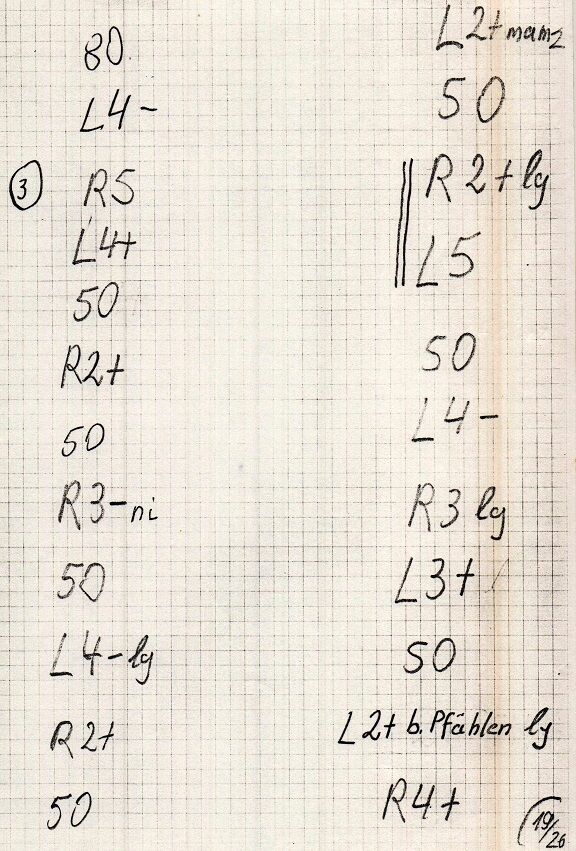 80
L4-
③ R5
L4+
50
R2+
50
R3-ni
50
L4-lg
R2+
50
L2+
50
R2+lg
L5
50
L4-
R3 lg
L3+
50
L2+ b. Pfählen lg
R4+
19/26